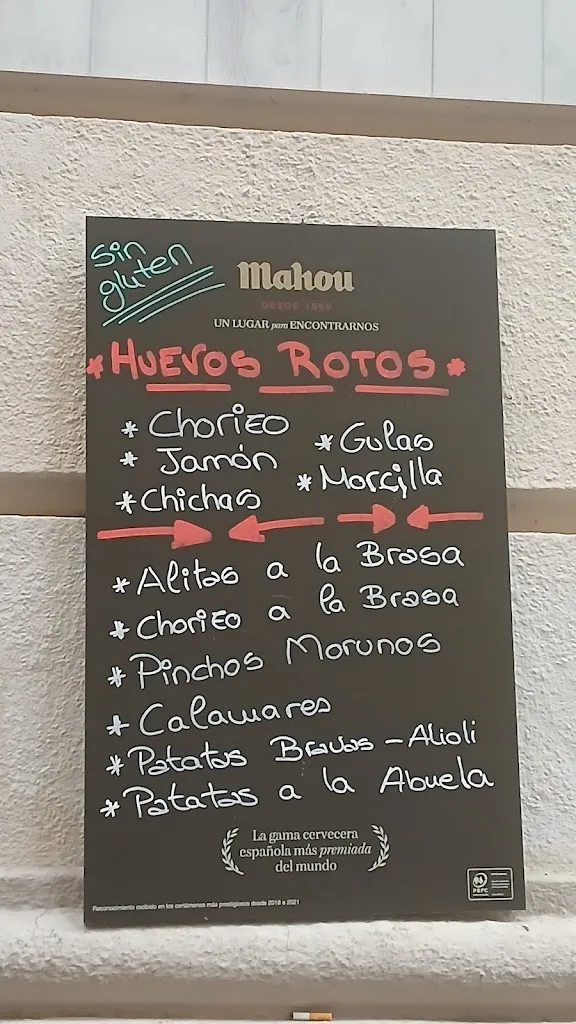 Sin
gluten
Mahou
DESDE 1890
UN LUGAR para ENCONTRARNOS
* HUEVOS ROTOS *
* Chorizo
* Gulas
* Jamón
* Morcilla
* Chichas
* Alitas a la Brasa
* Chorizo a la Brasa
* Pinchos Morunos
* Calamares
* Patatas Bravas - Alioli
* Patatas a la Abuela
La gama cervecera
española más premiada
del mundo
Reconocimiento recibido en los certámenes más prestigiosos desde 2018 a 2021